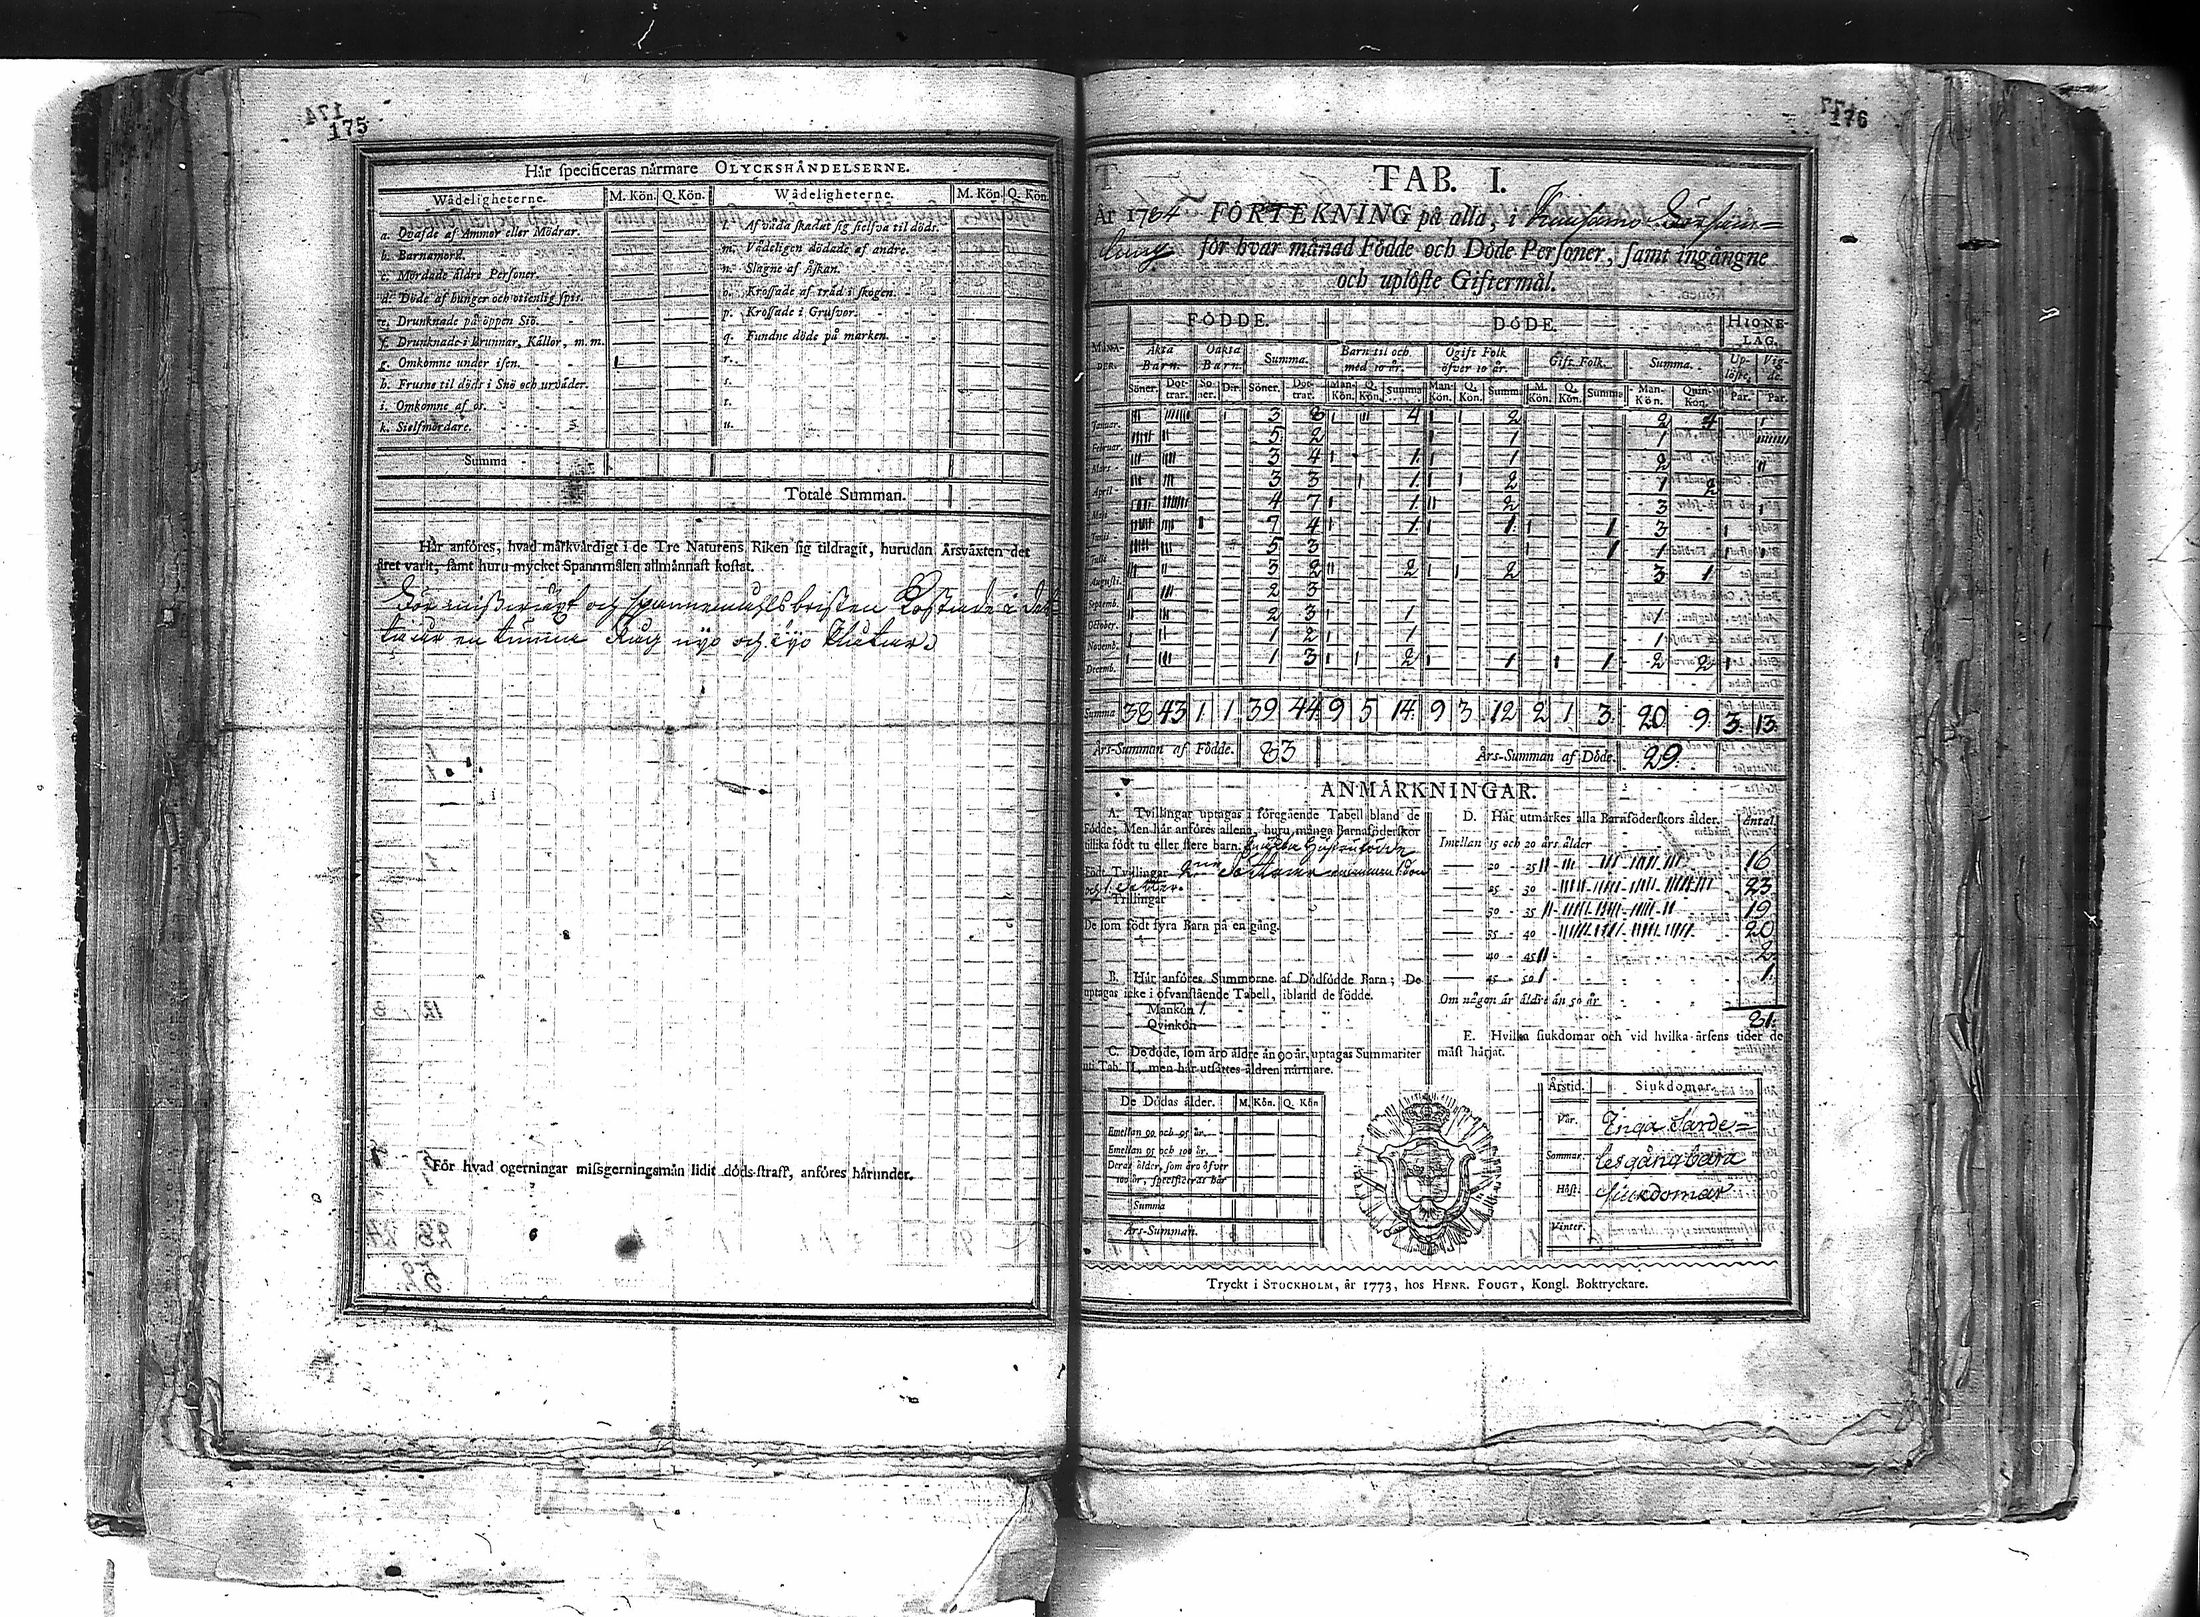 174
175
Här specificeras närmare OLYCKSHÄNDELSERNE.
Wådeligheterne. M. Kön. Q. Kön. Wådeligheterne. M. Kön. Q. Kön.
a. Qvafde af Ammor eller Mödrar.
b. Barnamord.
c. Mördade äldre Personer.
d. Döde af hunger och otienlig spis.
e. Drunknade på öppen Siö.
f. Drunknade i Brunnar, Källor, m. m.
g. Omkomne under isen. 1
h. Frusne til döds i Snö och urväder.
i. Omkomne af os.
k. Sielfmördare.
l. Af våda skadat sig sielfva til döds.
m. Vådeligen dödade af andre.
n. Slagne af Åskan.
o. Krossade af träd i skogen.
p. Krossade i Grufvor.
q. Fundne döde på marken.
r.
s.
t.
u.
Summa
Totale Summan.
Här anföres, hvad märkvärdigt i de Tre Naturens Riken sig tildragit, hurudan Årsväxten det
året varit, samt huru mycket Spannmålen allmännast kostat.
För och spannemåhlsbristen Kostade i
en tunna Råg och Plåtar
För hvad ogerningar missgerningsmän lidit döds-straff, anföres härunder.
176
TAB. I.
År 1784 FÖRTEKNING på alla, i Kuusamo Församl=
ling för hvar månad Födde och Döde Personer, samt ingångne
och uplöste Giftermål.
MÅNADER. FÖDDE. DÖDE. HIONELAG.
Äkta Barn. Oäkta Barn. Summa. Barn til och med 10 år. Ogift Folk öfver 10 år. Gift Folk. Summa. Uplöste. Vigde.
Söner. Dottrar. Söner. Dtr. Söner. Dottrar. Man-Kön. Q. Kön. Summa Man-Kön. Q. Kön. Summa M. Kön. Q. Kön. Summa Man-Kön. Quin-Kön. Par. Par.
Januar. 3 8 4 2 2 4
Februar. 5 2 1 1
Mars 3 4 1 1 2
April 3 3 1 2 1 2
Maji 4 7 1 2 3
Junii 7 4 1 1 1 3
Julii 5 3 1 1
Augusti. 3 2 2 2 3 1
Septemb. 2 3
October. 2 3 1 1
Novemb. 1 2 1 1
Decemb. 1 3 2 1 1 2 2
Summa 38 43 1 1 39 44 9 5 14 9 3 12 2 1 3 20 9 3 13
Års-Summan af Födde. 83 Års-Summan af Döde. 29
ANMÄRKNINGAR.
A. Tvillingar uptagas i föregående Tabell bland de
födde; Men här anföres allena, huru många Barnaföderskor
tillika födt tu eller flere barn.
Födt Tvillingar
och 1 Dotter.
Trillingar
De som födt fyra Barn på en gång.
B. Här anföres Summorne af Dödfödde Barn; De
uptagas icke i ofvanstående Tabell, ibland de födde.
Mankön 1.
Qvinkön
C. De döde, som äro äldre än 90 år, uptagas Summariter
uti Tab. II, men här utsättes åldren närmare.
De Dödas ålder. M. Kön. Q. Kön
Emellan 90 och 95 år.
Emellan 95 och 100 år.
Deras ålder, som äro öfver
100 år, specificeras här
Summa
Års-Summan.
D. Här utmärkes alla Barnföderskors ålder. Antal.
Imellan 15 och 20 års ålder
20 - 25 16
25 - 30 23
30 - 35 19
35 - 40 20
40 - 45 2
45 - 50 1
Om någon är äldre än 50 år
81
E. Hvilka siukdomar och vid hvilka årsens tider de
mäst härjat.
Årstid. Siukdomar.
Vår. Inga Särde=
Sommar. les gångbara
Höst. siukdomar
Vinter.
Tryckt i STOCKHOLM, år 1773, hos HENR. FOUGT, Kongl. Boktryckare.